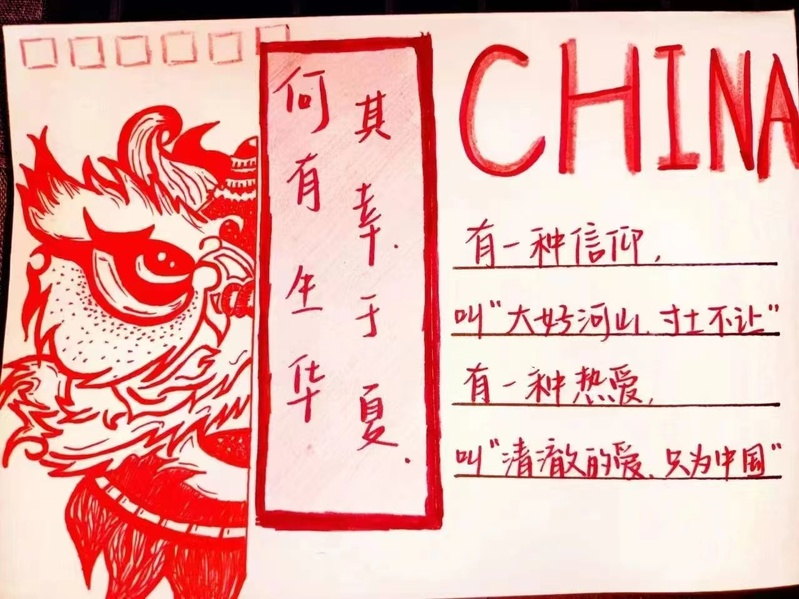 何其
有幸.
生于
华夏.
CHINA
有一种信仰,
叫“大好河山、寸土不让”
有一种热爱,
叫“清澈的爱、只为中国”